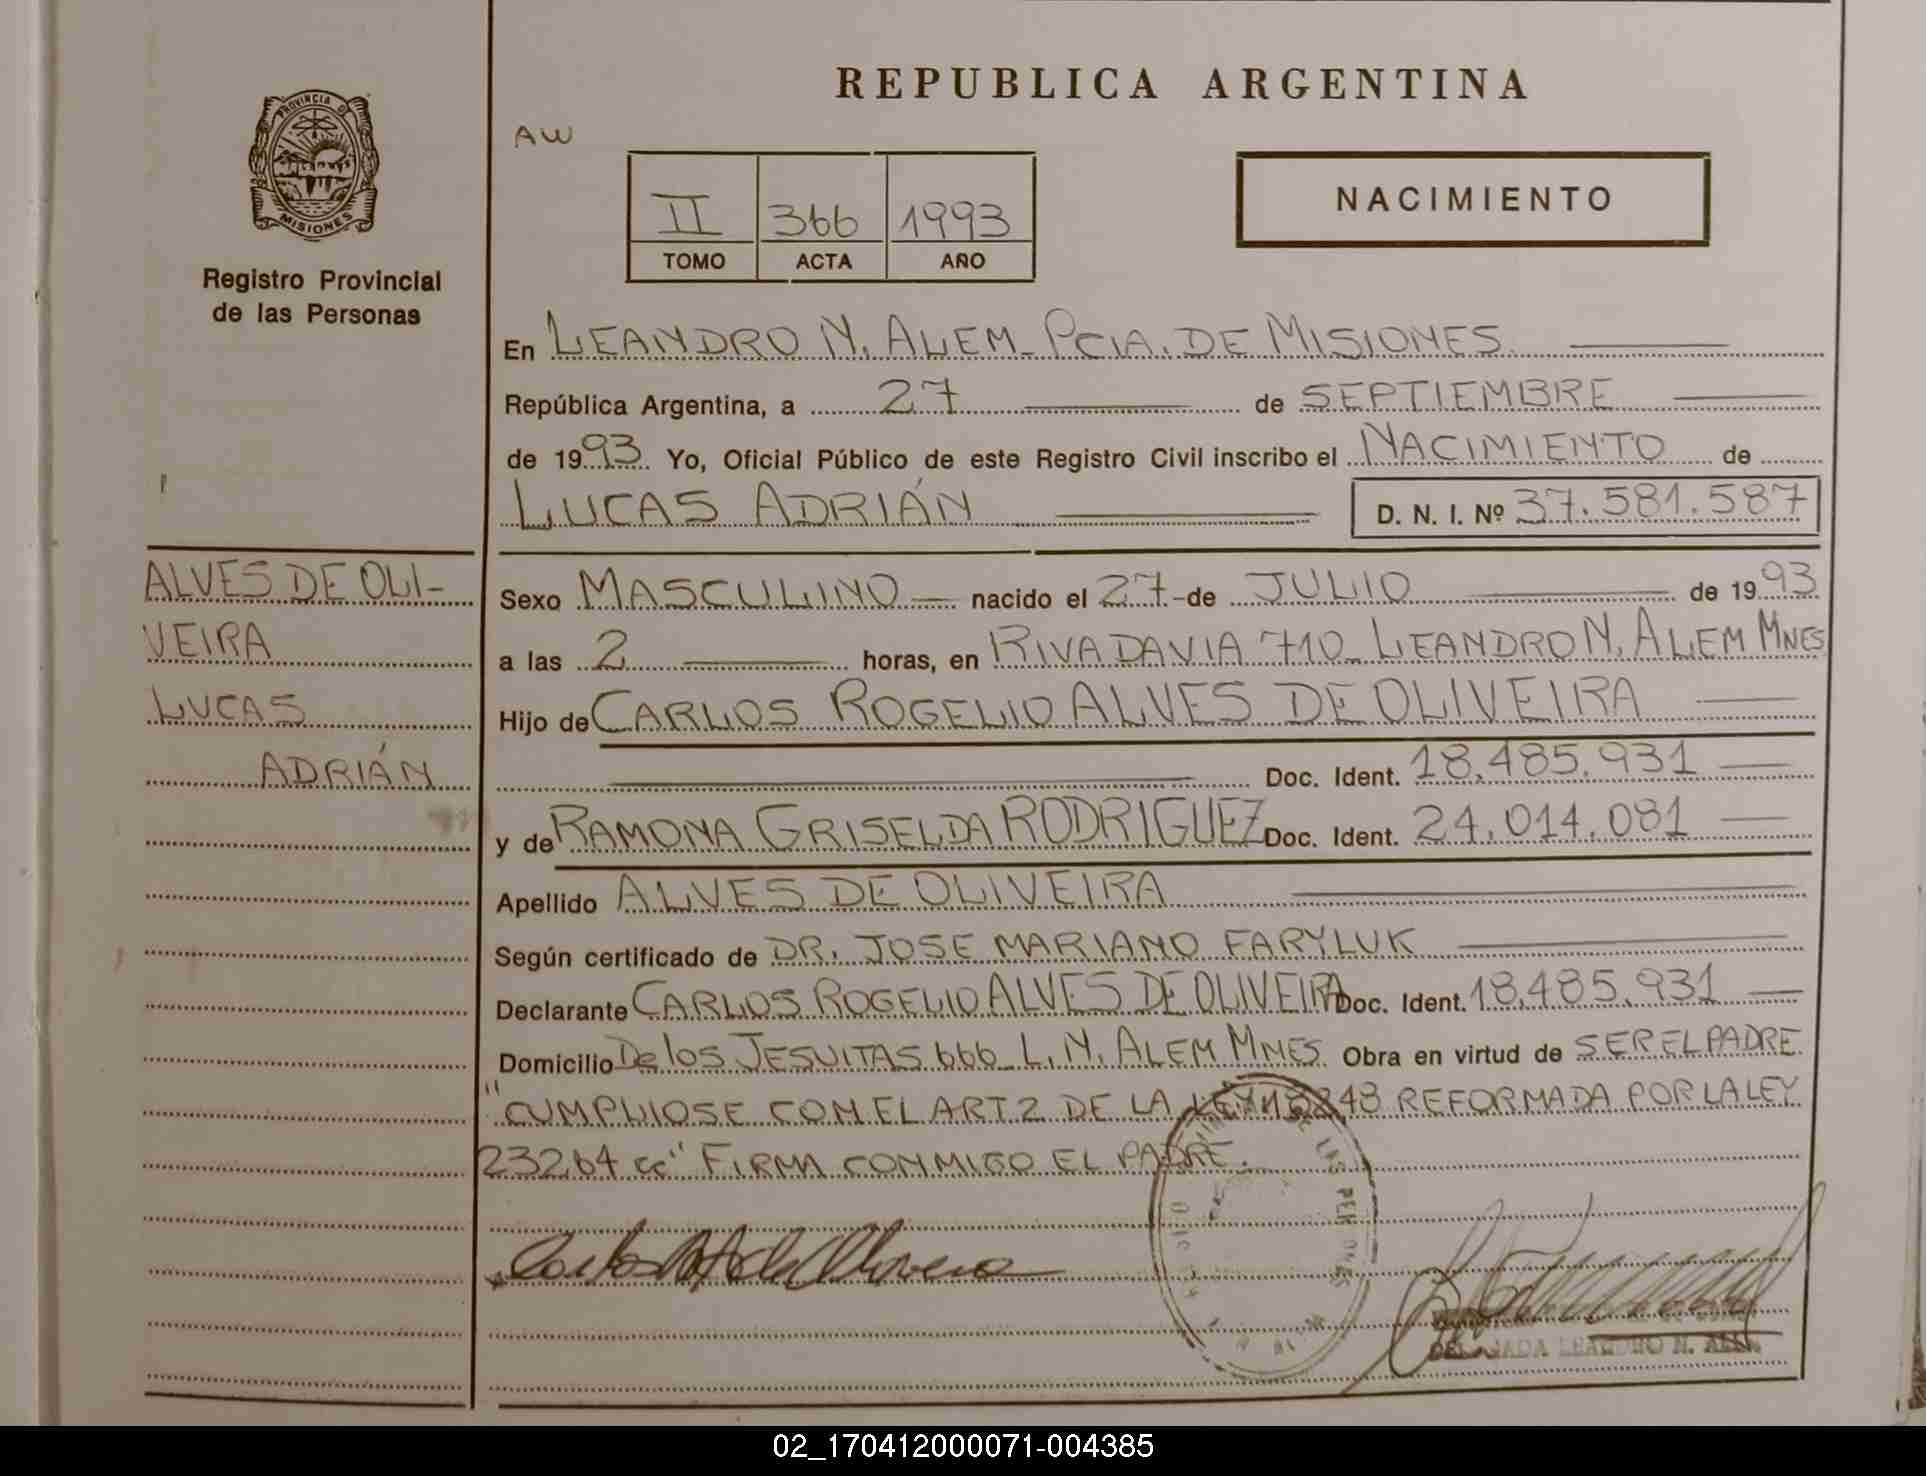 REPUBLICA ARGENTINA
PROVINCIA D
MISIONES
Registro Provincial
de las Personas
AW
II 366 1993
TOMO ACTA AÑO
NACIMIENTO
En LEANDRO N. ALEM - PCIA. DE MISIONES.
República Argentina, a 27 de SEPTIEMBRE
de 1993. Yo, Oficial Público de este Registro Civil inscribo el NACIMIENTO de
LUCAS ADRIÁN D. N. I. Nº 37.581.587
ALVES DE OLI-
VEIRA
LUCAS
ADRIÁN
Sexo MASCULINO nacido el 27 - de JULIO de 1993
a las 2 horas, en RIVADAVIA 710 - LEANDRO N. ALEM MNES
Hijo de CARLOS ROGELIO ALVES DE OLIVEIRA
Doc. Ident. 18.485.931
y de RAMONA GRISELDA RODRIGUEZ Doc. Ident. 24.014.081
Apellido ALVES DE OLIVEIRA
Según certificado de DR. JOSE MARIANO FARYLUK
Declarante CARLOS ROGELIO ALVES DE OLIVEIRA Doc. Ident. 18.485.931
Domicilio De los JESUITAS 666 - L. N. ALEM MNES. Obra en virtud de SER EL PADRE.
"CUMPLIOSE CON EL ART 2 DE LA LEY 18248 REFORMADA POR LA LEY
23264 cc" FIRMA CONMIGO EL PADRE.
LEANDRO N. ALEM
02_170412000071-004385